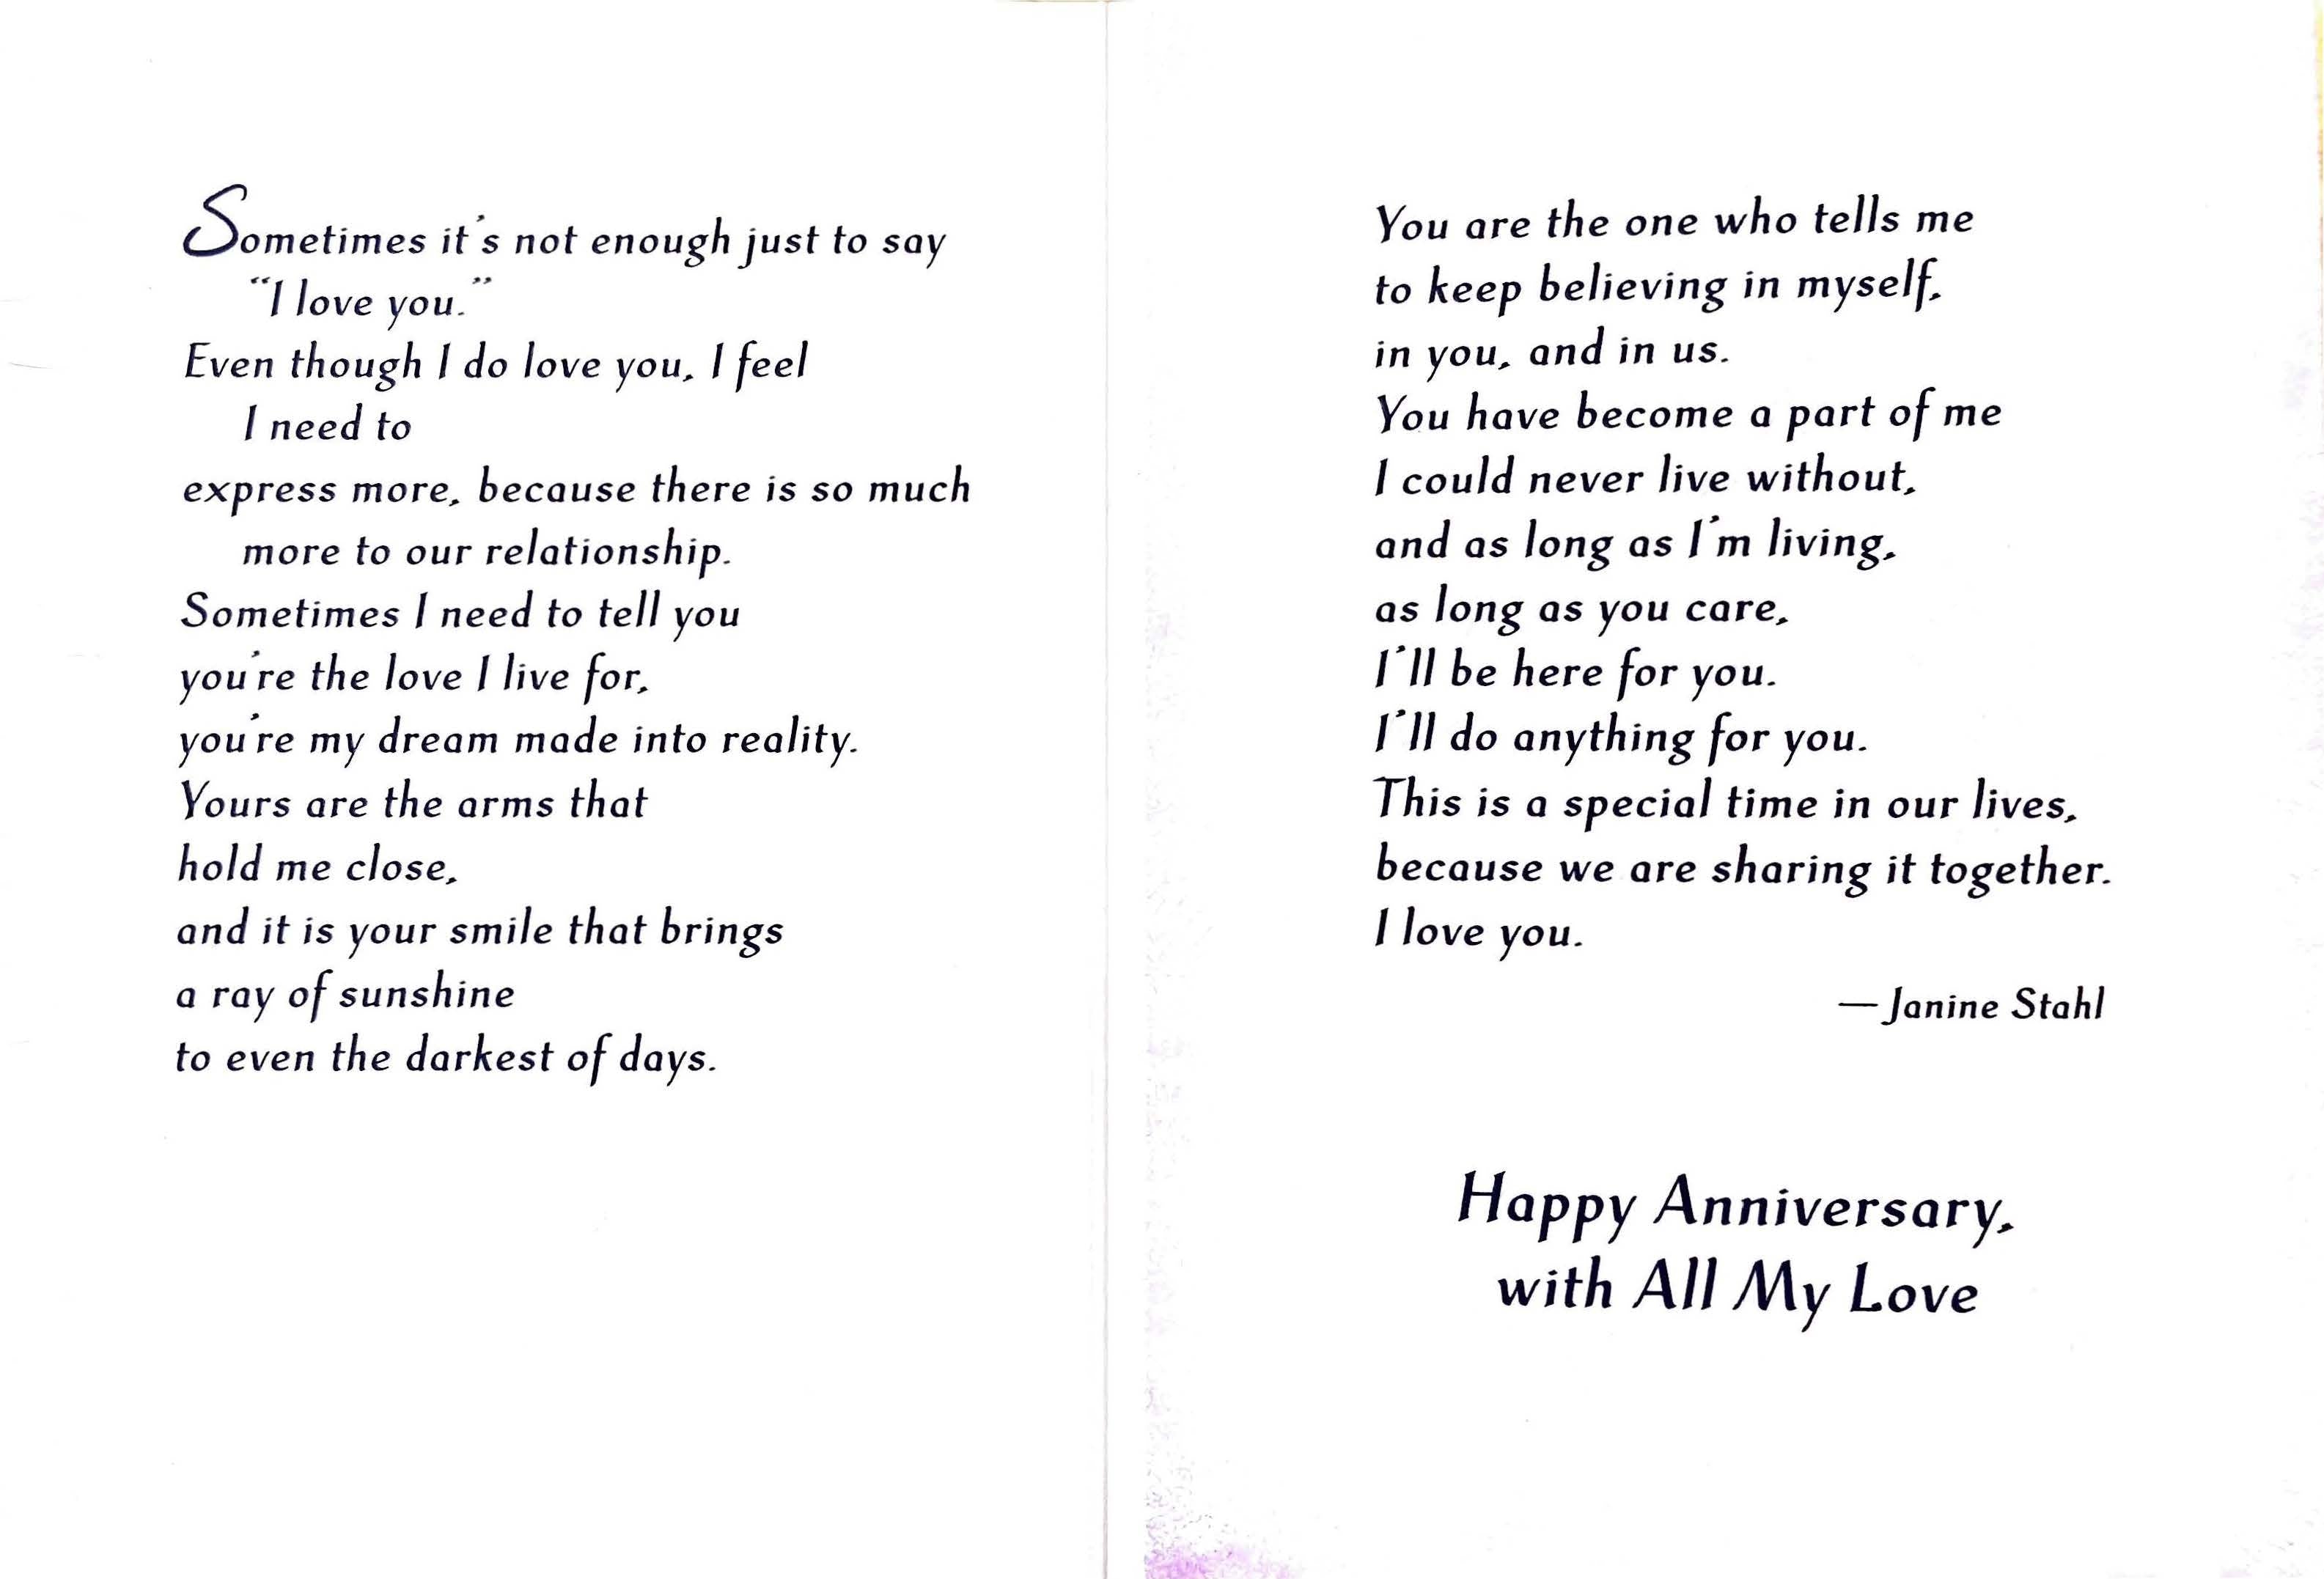 Sometimes it's not enough just to say
"I love you."
Even though I do love you, I feel
I need to
express more, because there is so much
more to our relationship.
Sometimes I need to tell you
you're the love I live for,
you're my dream made into reality.
Yours are the arms that
hold me close,
and it is your smile that brings
a ray of sunshine
to even the darkest of days.
You are the one who tells me
to keep believing in myself,
in you, and in us.
You have become a part of me
I could never live without,
and as long as I'm living,
as long as you care,
I'll be here for you.
I'll do anything for you.
This is a special time in our lives,
because we are sharing it together.
I love you.
—Janine Stahl
Happy Anniversary,
with All My Love